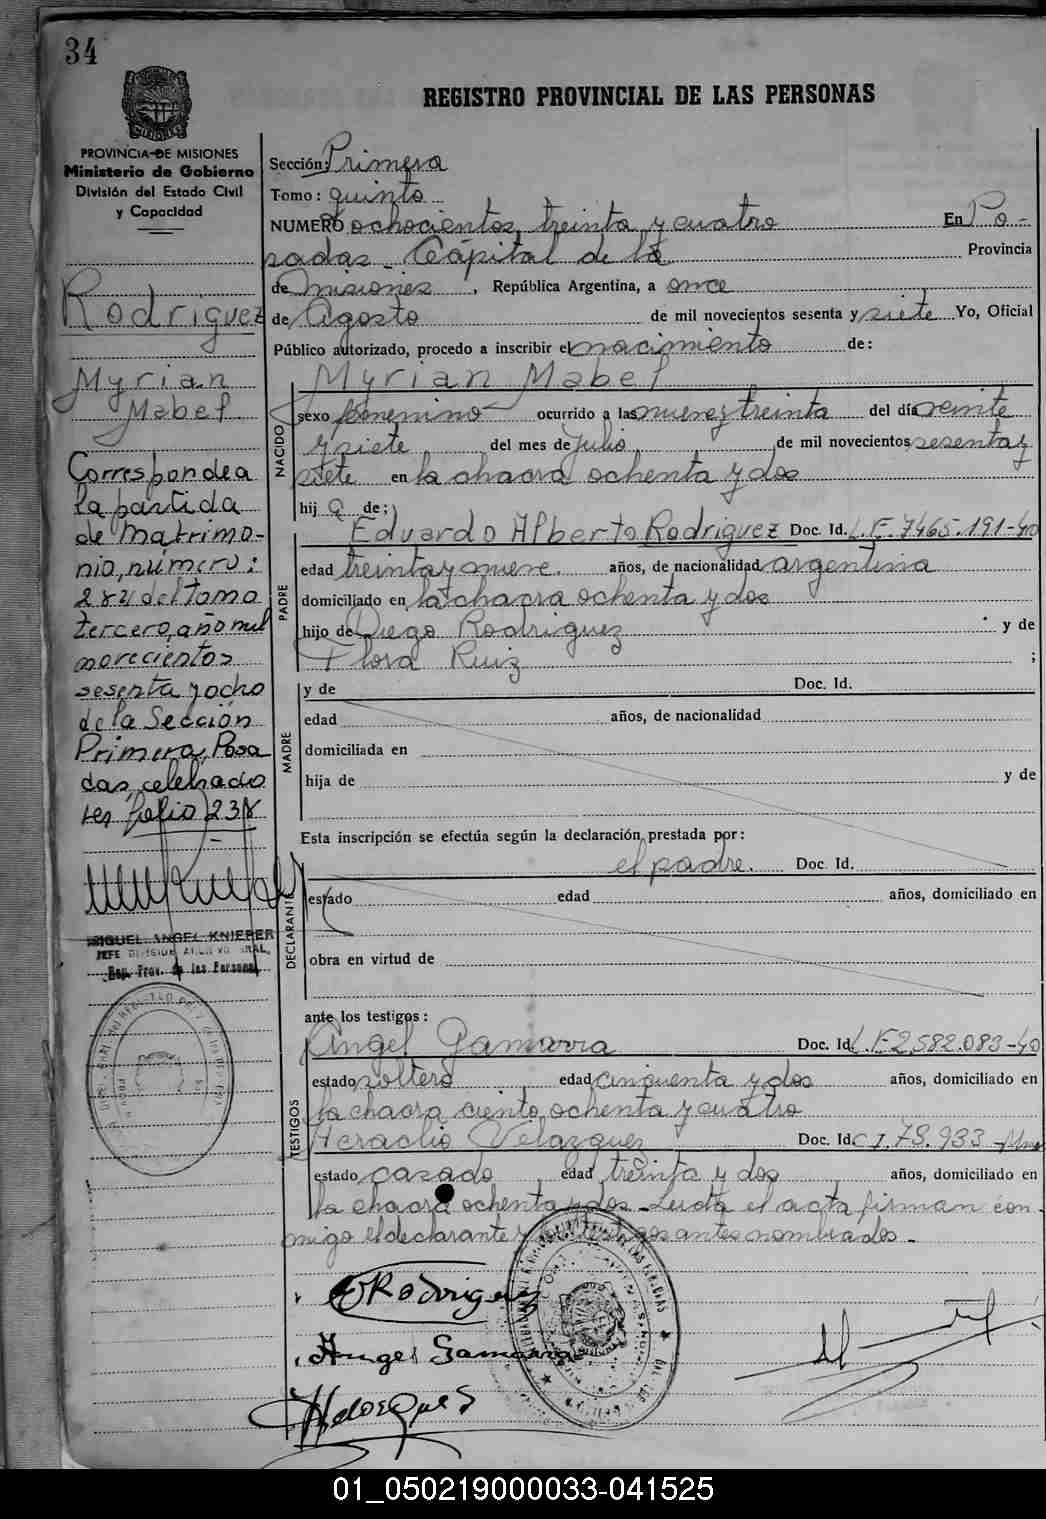 34
REGISTRO PROVINCIAL DE LAS PERSONAS
PROVINCIA DE MISIONES
Ministerio de Gobierno
División del Estado Civil
y Capacidad
Rodriguez
Myrian
Mabel
Corresponde a
la partida
de Matrimo-
nio, número:
284 del tomo
tercero, año mil
novecientos
sesenta y ocho
de la Sección
Primera, Posa
das, celebrado
folio 238
MIGUEL ANGEL KNIEPER
JEFE DIVISION
Reg. Prov. de las Personas
Sección: Primera
Tomo: quinto
NUMERO ochocientos treinta y cuatro En Po-
sadas - Capital de la Provincia
de Misiones, República Argentina, a once
de Agosto de mil novecientos sesenta y siete Yo, Oficial
Público autorizado, procedo a inscribir el nacimiento de:
NACIDO
Myrian Mabel
sexo femenino ocurrido a las nueve y treinta del día veinte
y siete del mes de Julio de mil novecientos sesenta y
siete en la chacra ochenta y dos
hij a de:
PADRE
Eduardo Alberto Rodriguez Doc. Id. L.E. 7465.191-40
edad treinta y nueve años, de nacionalidad argentina
domiciliado en la chacra ochenta y dos
hijo de Diego Rodriguez y de
Flora Ruiz ;
MADRE
y de Doc. Id.
edad años, de nacionalidad
domiciliada en
hija de y de
Esta inscripción se efectúa según la declaración prestada por:
DECLARANTE
el padre. Doc. Id.
estado edad años, domiciliado en
obra en virtud de
ante los testigos:
TESTIGOS
Angel Gamarra Doc. Id. L.E. 2.582.083-40
estado soltero edad cincuenta y dos años, domiciliado en
la chacra ciento ochenta y cuatro
Heraclio Velazquez Doc. Id. C.I. 78.933
estado casado edad treinta y dos años, domiciliado en
la chacra ochenta y dos - Leida el acta firman con-
migo el declarante y testigos antes nombrados.-
Rodriguez
Angel Gamarra
01_050219000033-041525